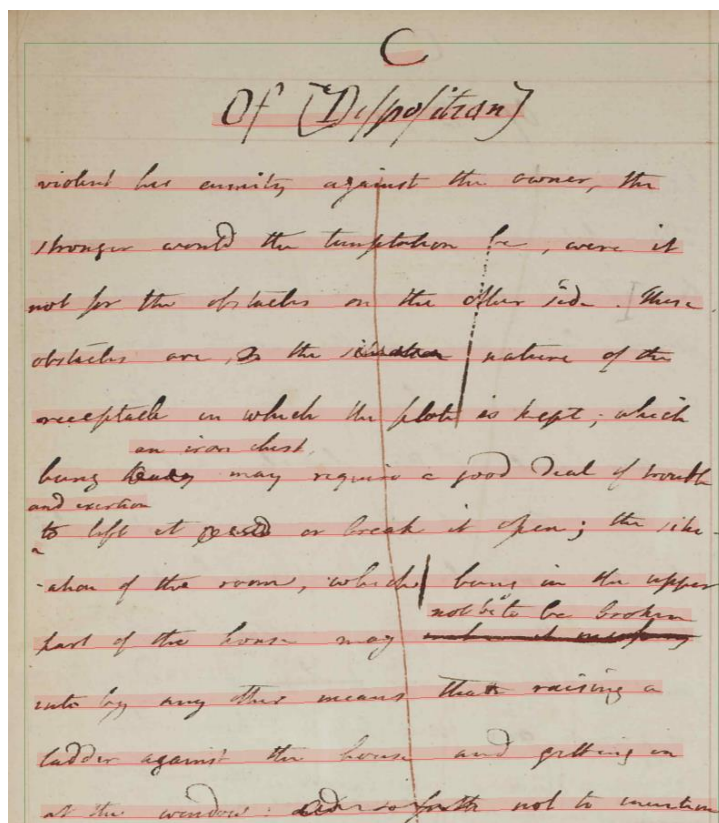 C
Of [Disposition]
violent his enmity against the owner, the
stronger would the temptation be, were it
not for the obstacles on the other side. These
obstacles are, the nature of the
receptacle in which the plate is kept; which
an iron chest
being may require a good deal of trouble
and exertion
to lift it or break it open; the situ-
-ation of the room, which being in the upper
not be to be broken
part of the house may
into by any other means than raising a
ladder against the house and getting in
at the window: and so forth not to mention